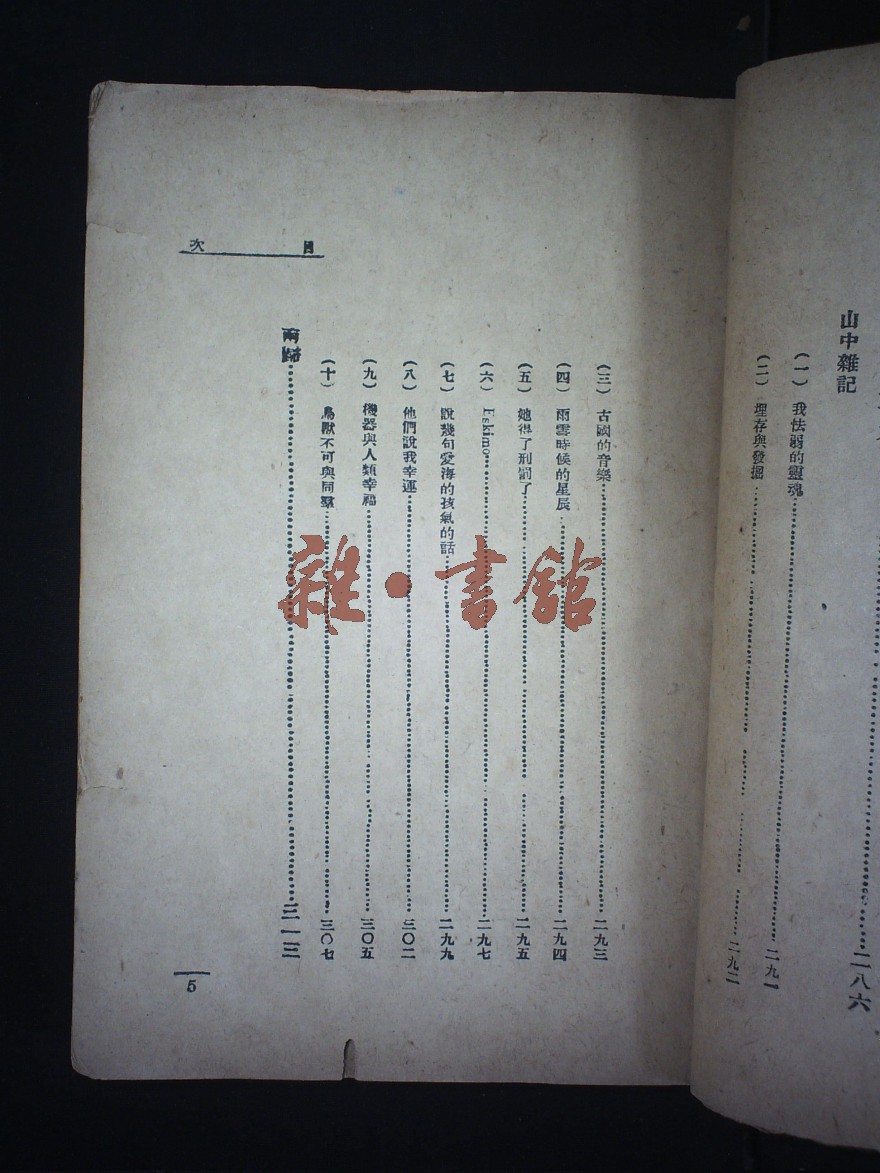 山中雜記……二八六
(一) 我怯弱的靈魂……二九一
(二) 埋存與發掘……二九二
目次
(三) 古國的音樂……二九三
(四) 雨雪時候的星辰……二九四
(五) 她得了刑罰了……二九五
(六) Eskimo……二九七
(七) 說幾句愛海的孩氣的話……二九九
(八) 他們說我幸運……三〇二
(九) 機器與人類幸福……三〇五
(十) 鳥獸不可與同羣……三〇七
兩歸……三一三
5
雜·書館